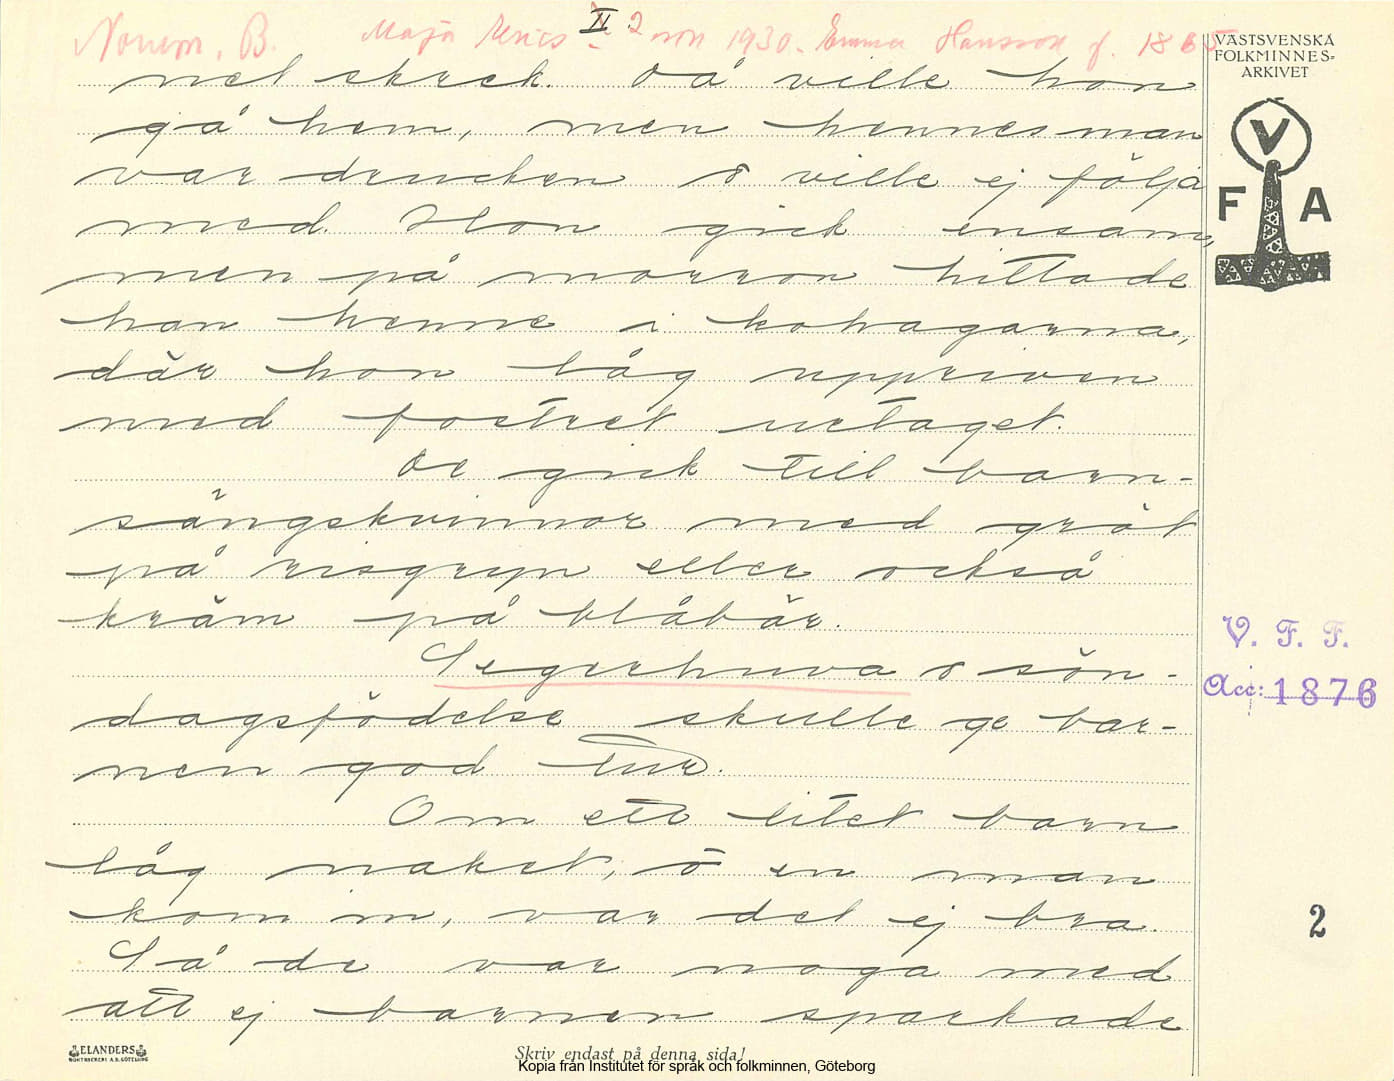 Norum, B. Maja Ericsson 1930. Emma Hansson f. 1865
II 2
net skrek. Då ville hon
gå hem, men hennes man
var drucken o ville ej följa
med. Hon gick ensam,
men på morron hittade
han henne i kohagarna,
där hon låg uppriven
med fostret uttaget.
De gick till barn-
sängskvinnor med gröt
på risgryn eller också
kräm på blåbär.
Segerhuva o sön-
dagsfödelse skulle ge bar-
nen god tur.
Om ett litet barn
låg naket, o en man
kom in, var det ej bra.
Så de var noga med
att ej barnen sparkade
VÄSTSVENSKA
FOLKMINNES=
ARKIVET
V
F A
V. F. F.
Acc: 1876
2
ELANDERS
BOKTRYCKERI A.B. GÖTEBORG
Skriv endast på denna sida!
Kopia från Institutet för språk och folkminnen, Göteborg